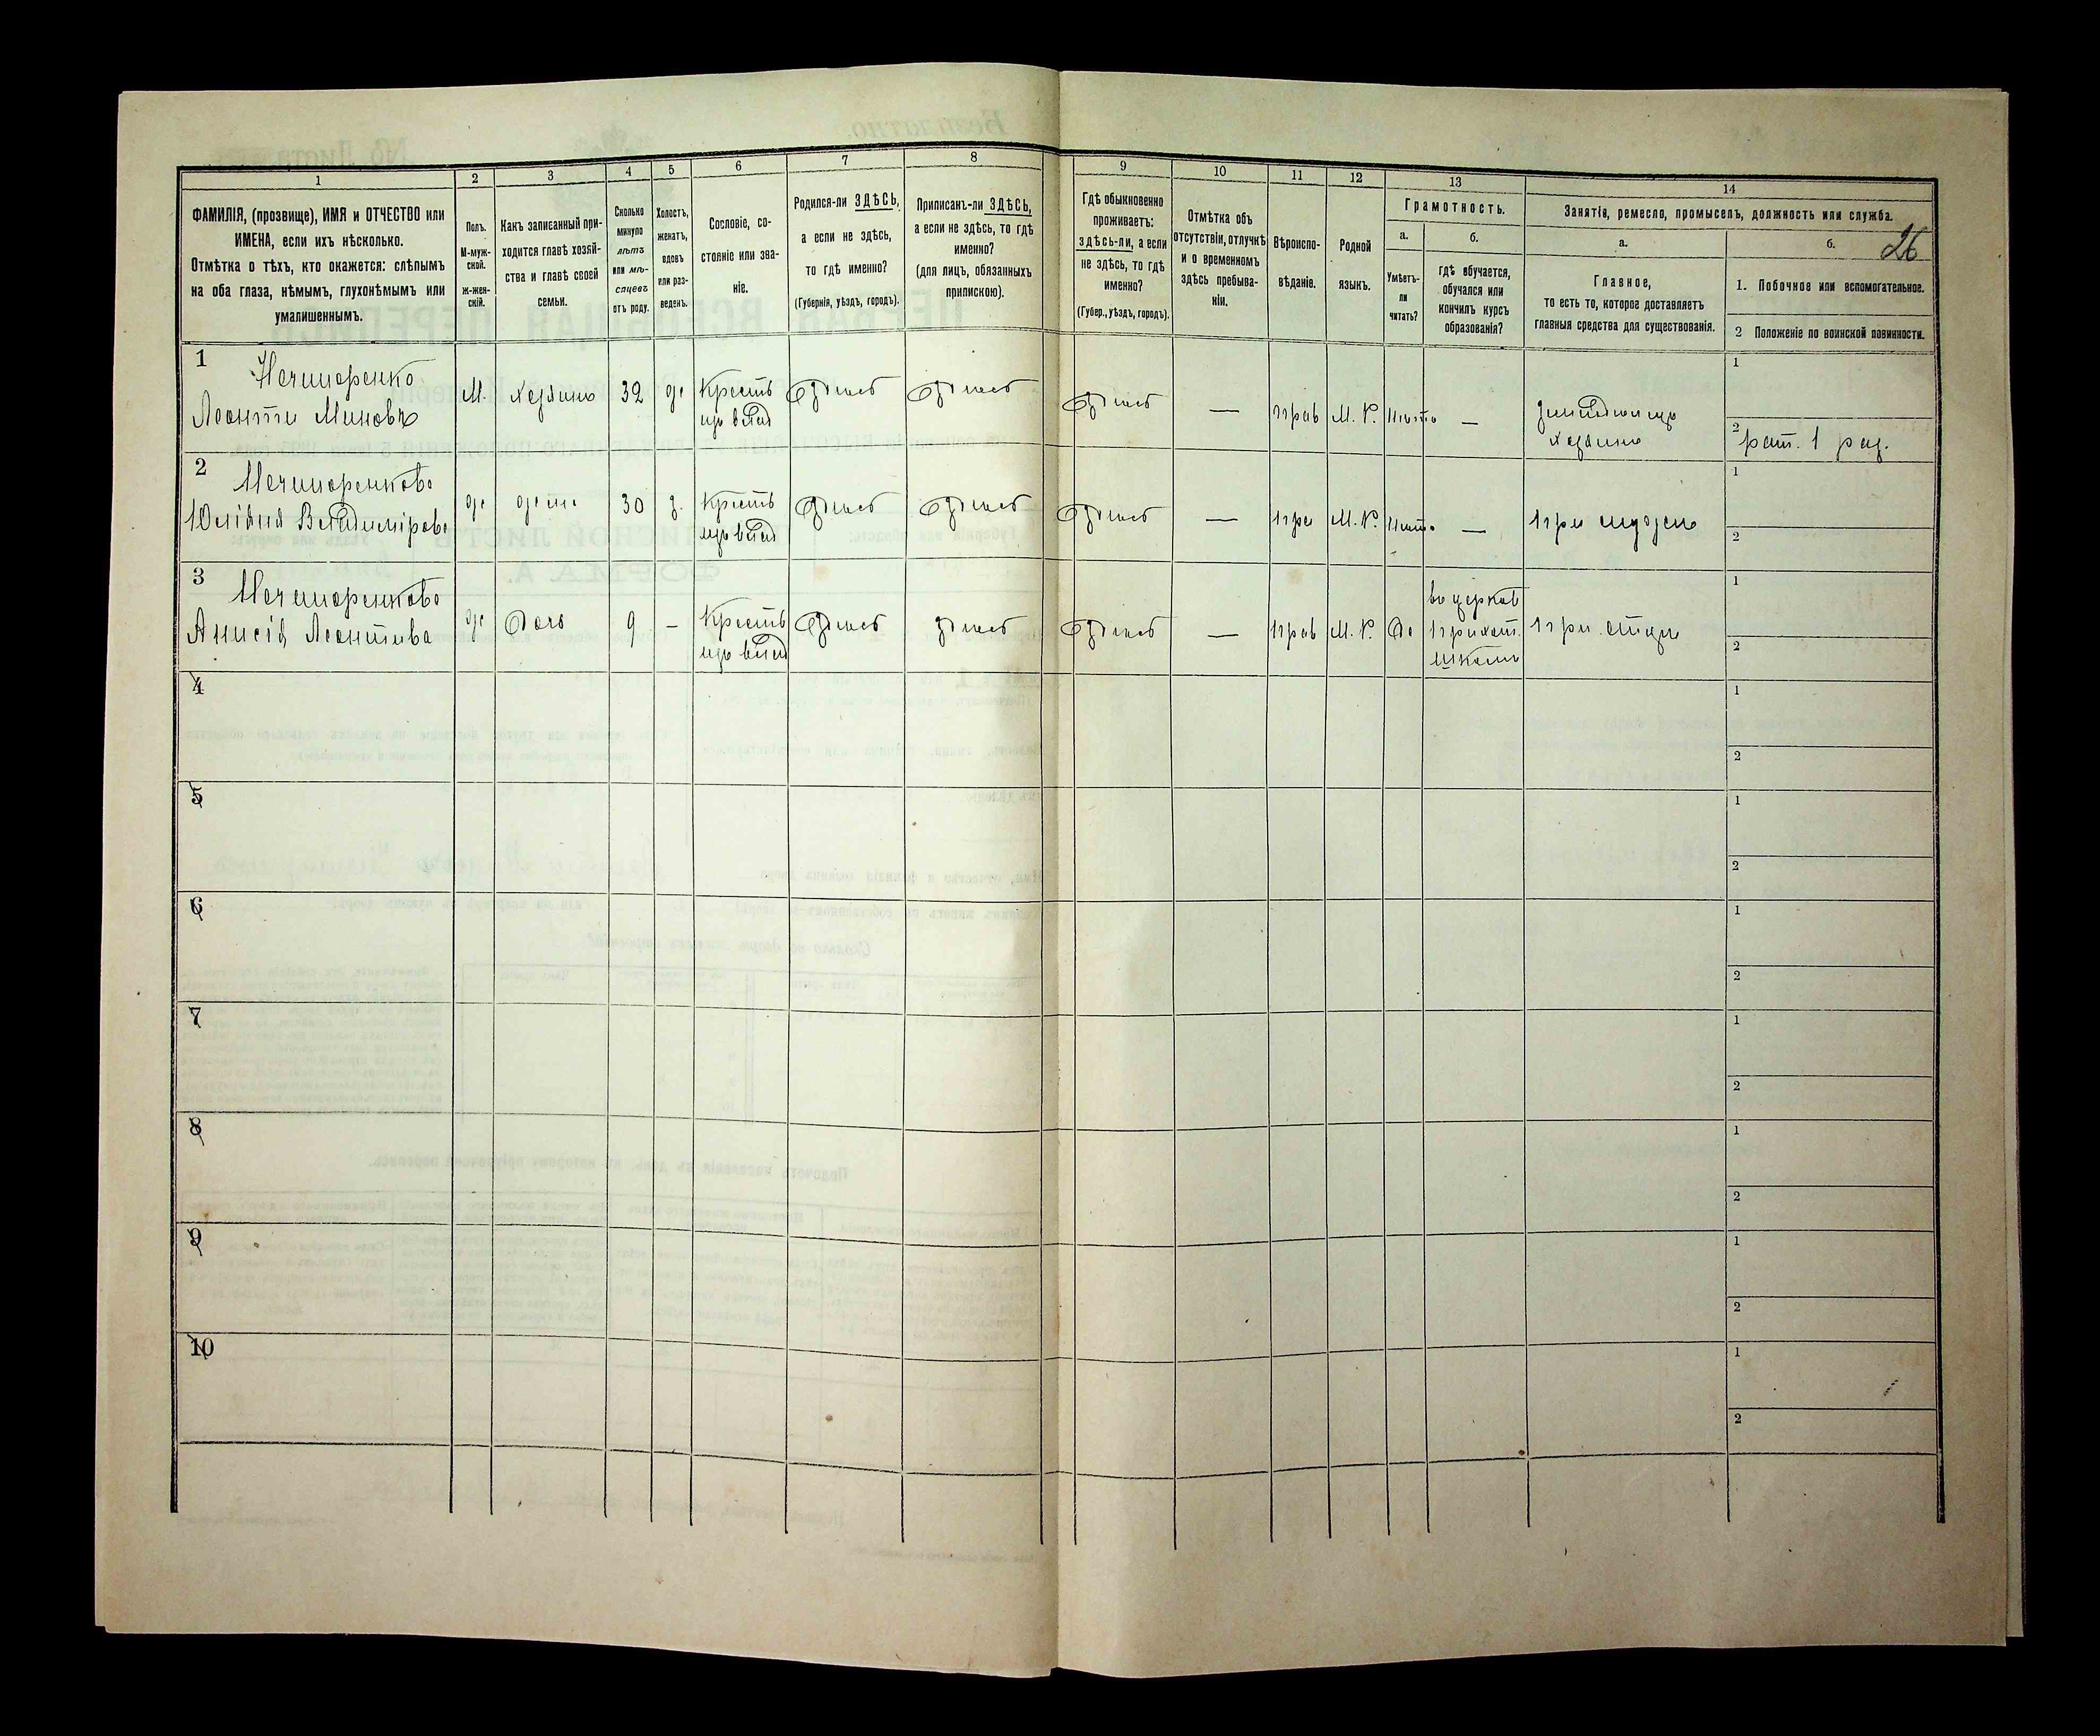 1
2
3
4
5
6
7
8
9
10
11
12
13
14
ФАМИЛІЯ, (прозвище), ИМЯ и ОТЧЕСТВО или
ИМЕНА, если ихъ нѣсколько.
Отмѣтка о тѣхъ, кто окажется: слѣпымъ
на оба глаза, нѣмымъ, глухонѣмымъ или
умалишеннымъ.
Полъ.
М-муж-
ской.
Ж-жен-
скій.
Какъ записанный при-
ходится главѣ хозяй-
ства и главѣ своей
семьи.
Сколько
минуло
лѣтъ
или мѣ-
сяцевъ
отъ роду.
Холостъ,
женатъ,
вдовъ
или раз-
веденъ.
Сословіе, со-
стояніе или зва-
ніе.
Родился-ли ЗДѢСЬ,
а если не здѣсь,
то гдѣ именно?
(Губернія, уѣздъ, городъ).
Приписанъ-ли ЗДѢСЬ,
а если не здѣсь, то гдѣ
именно?
(для лицъ, обязанныхъ
припискою).
Гдѣ обыкновенно
проживаетъ:
здѣсь-ли, а если
не здѣсь, то гдѣ
именно?
(Губер., уѣздъ, городъ).
Отмѣтка объ
отсутствіи, отлучкѣ
и о временномъ
здѣсь пребыва-
ніи.
Вѣроиспо-
вѣданіе.
Родной
языкъ.
Грамотность.
а.
Умѣетъ-
ли
читать?
б.
гдѣ обучается,
обучался или
кончилъ курсъ
образованія?
Занятія, ремесло, промыселъ, должность или служба.
а.
Главное,
то есть то, которое доставляетъ
главныя средства для существованія.
б.
26
1. Побочное или вспомогательное.
2 Положеніе по воинской повинности.
1
Нечипоренко
Леонтій Миновъ
М.
хозяинъ
32
ж
Крестъ
изъ влад
здѣсь
здѣсь
здѣсь
—
прав
М. Р.
нѣтъ
—
хозяинъ
1
2
рат. 1 раз.
2
Нечипоренкова
Юлія Владимірова
ж
жена
30
з.
Крестъ
изъ влад
здѣсь
здѣсь
здѣсь
—
пра
М. Р.
нѣтъ
—
при мужѣ
1
2
3
Нечипоренкова
Анисія Леонтіева
ж
дочь
9
—
Крестъ
изъ влад
здѣсь
здѣсь
здѣсь
—
прав
М. Р.
да
въ церков
приход.
школѣ
при отцѣ
1
2
4
1
2
5
1
2
6
1
2
7
1
2
8
1
2
9
1
2
10
1
2